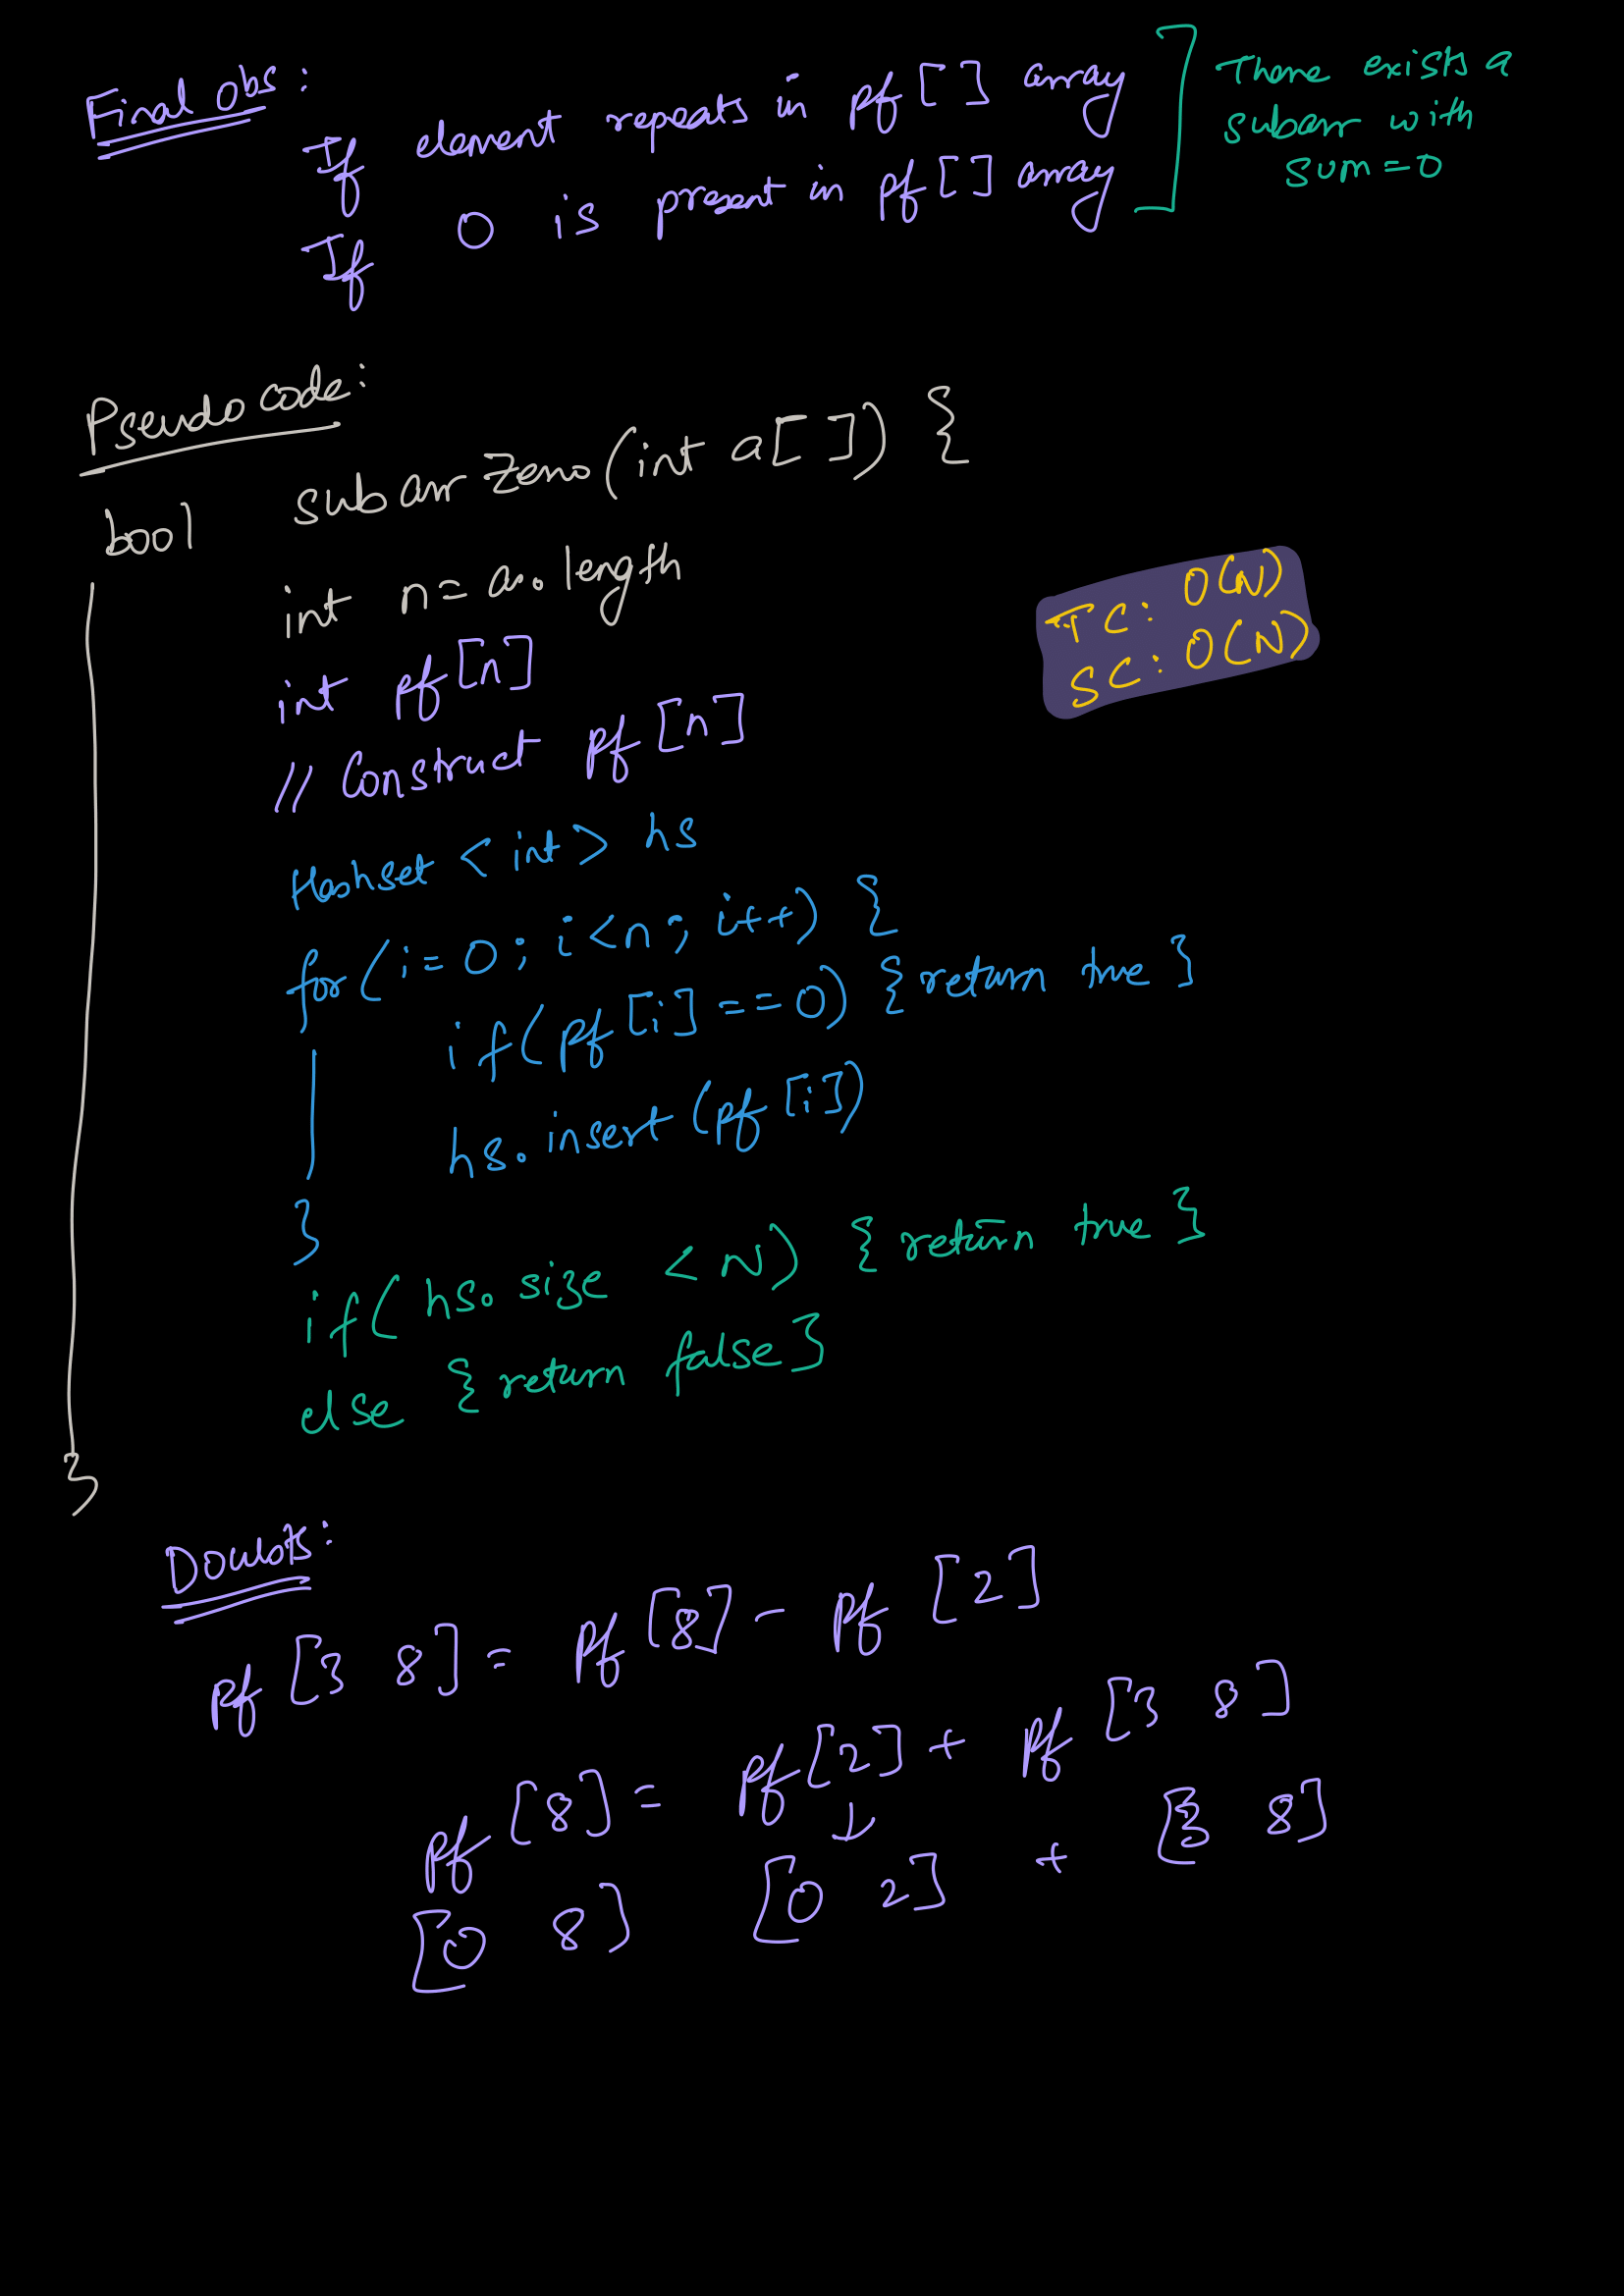 Final obs:
If element repeats in pf [ ] array
If 0 is present in pf [ ] array
There exists a
subarr with
sum = 0
Pseudo code:
bool subarrZero(int a[ ]) {
int n = a.length
int pf[n]
// Construct pf[n]
TC: O(N)
SC: O(N)
Hashset <int> hs
for(i=0; i<n; i++) {
if(pf[i] == 0) {return true}
hs.insert(pf[i])
}
if(hs.size < N) {return true}
else {return false}
}
Doubts:
pf [3 8] = pf[8] - pf[2]
pf[8] = pf[2] + pf[3 8]
↓
[0 8] [0 2] + [3 8]